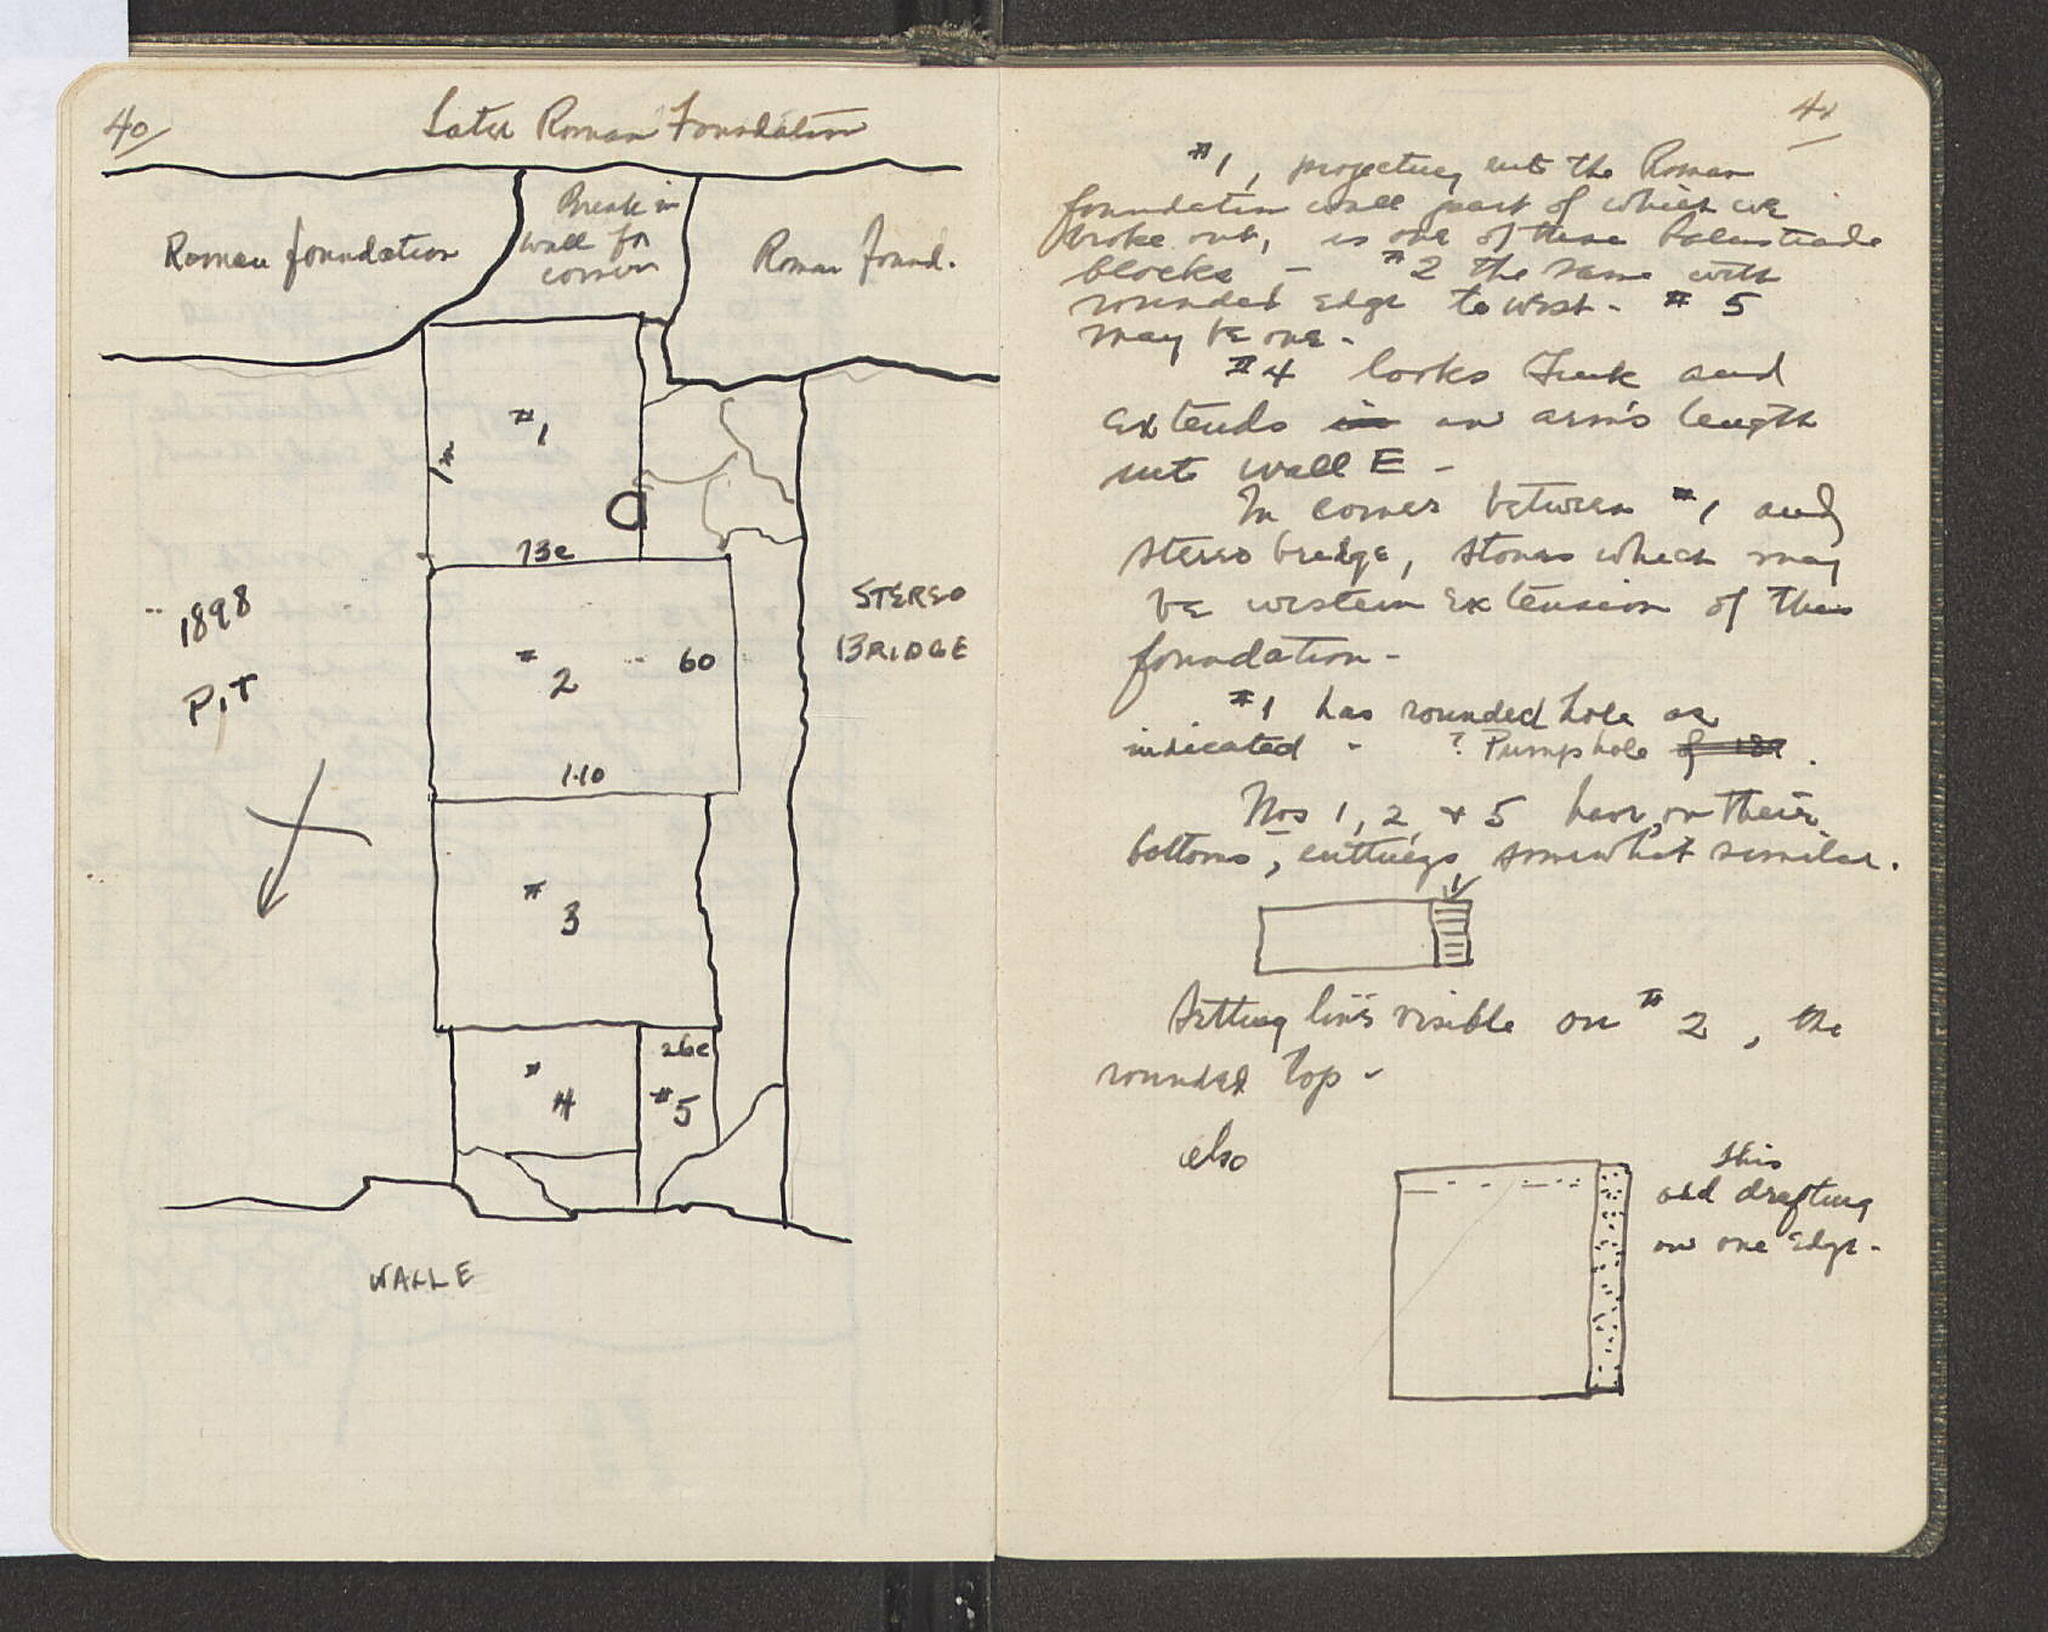 40
Later Roman Foundation
Roman foundation
Break in
wall for
corner
Roman found.
#1
73c
1898
PIT
#2
60
1.10
STEREO
BRIDGE
#3
#4
26c
#5
WALL E
41
#1, projecting into the Roman
foundation wall part of which we
broke out, is one of these balustrade
blocks - #2 the same with
rounded edge to west - #5
may be one -
#4 looks and
extends in an arm's length
into wall E -
In corner between #1 and
stereo bridge, stones which may
be western extension of this
foundation -
#1 has rounded hole as
indicated - ? Pump hole of 189 .
Nos 1, 2, & 5 have, on their
bottoms, cuttings, somewhat similar.
Setting lines visible on #2, the
rounded top -
also
this
and drafting
on one edge -